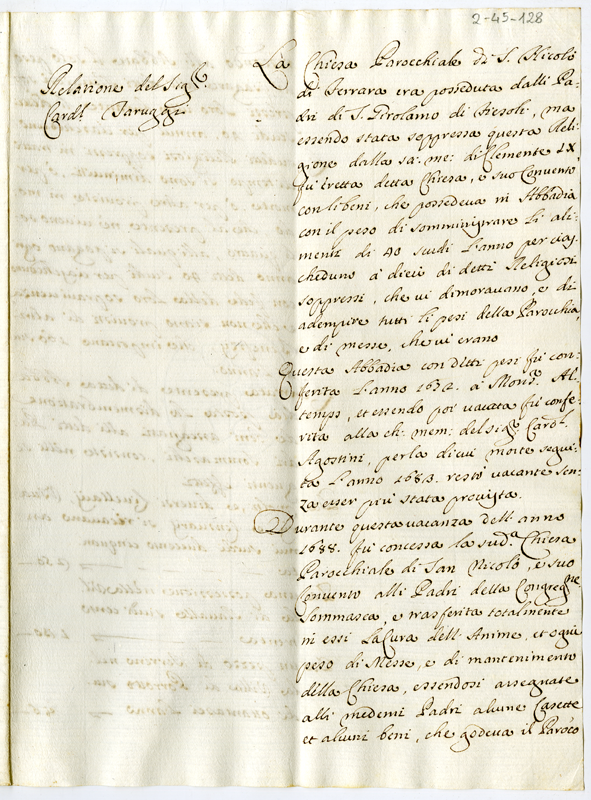 2-45-128
Relatione del Sigr
Cardl Taruggi
La Chiesa Parocchiale di S. Nicolò
di Ferrara era posseduta dalli Pa-
dri di S. Girolamo di Fiesoli, ma
essendo stata soppressa questa Reli-
gione dalla sa: me: di Clemente IX.
fù eretta detta Chiesa, e suo Convento
con li beni, che possedeva in Abbadia
con il peso di somministrare li ali-
menti di 40 scudi l'anno per ciaș-
cheduno à dieci di detti Religiosi
soppressi, che vi dimoravano, e di
adempire tutti li pesi della Parochia,
e di messe, che vi erano
Questa Abbadia con detti pesi fù con-
ferita l'anno 1672. à Monsr Al-
temps, et essendo poi vacata fù confe-
rita alla ch: mem: del sigr Cardl
Agostini, per la di cui morte segui-
ta l'anno 1683. restò vacante sen-
za esser più stata provista.
Durante questa vacanza dell'anno
1688. fù concessa la suda Chiesa
Parocchiale di San Nicolò, e suo
Convento alli Padri della Congregne
Sommasca, e trasferita totalmente
in essi La Cura dell'Anime, et ogni
peso di Messe, e di mantenimento
della Chiesa, essendosi assegnate
alli medemi Padri alcune Casette
et alcuni beni, che godeva il Paroco